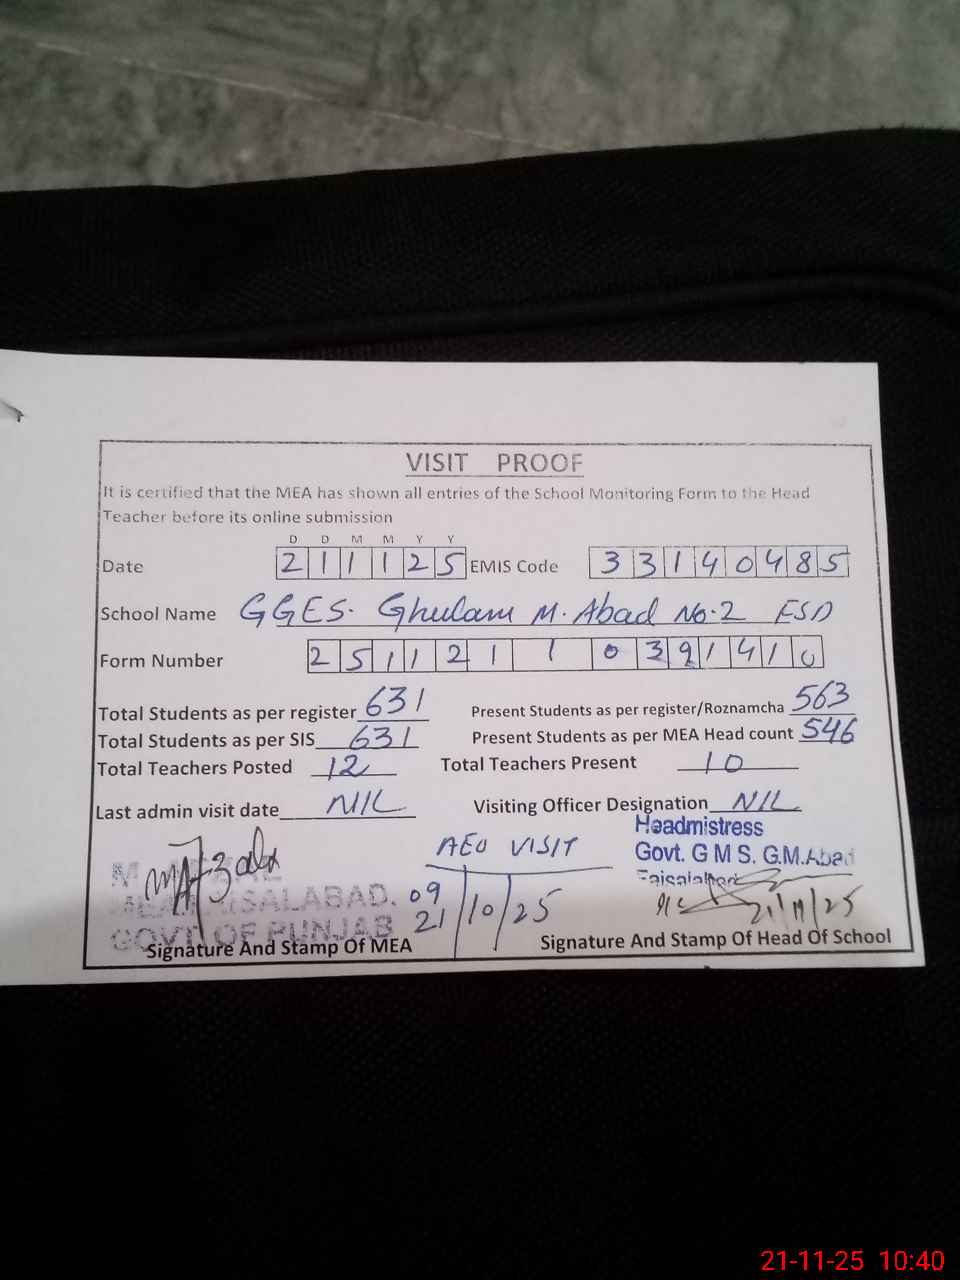 VISIT PROOF
It is certified that the MEA has shown all entries of the School Monitoring Form to the Head
Teacher before its online submission
D D M M Y Y
Date 2 1 1 1 2 5 EMIS Code 3 3 1 4 0 4 8 5
School Name GGES. Ghulam M. Abad No.2 FSD
Form Number 2 5 1 1 2 1 1 0 3 9 1 4 1 0
Total Students as per register 631 Present Students as per register/Roznamcha 563
Total Students as per SIS 631 Present Students as per MEA Head count 546
Total Teachers Posted 12 Total Teachers Present 10
Last admin visit date NIL Visiting Officer Designation NIL
AEO VISIT
09
21/10/25
Headmistress
Govt. G M S. G.M.Abad
Faisalabad
21/11/25
MEA FAISALABAD.
GOVT OF PUNJAB
Signature And Stamp Of MEA Signature And Stamp Of Head Of School
21-11-25 10:40